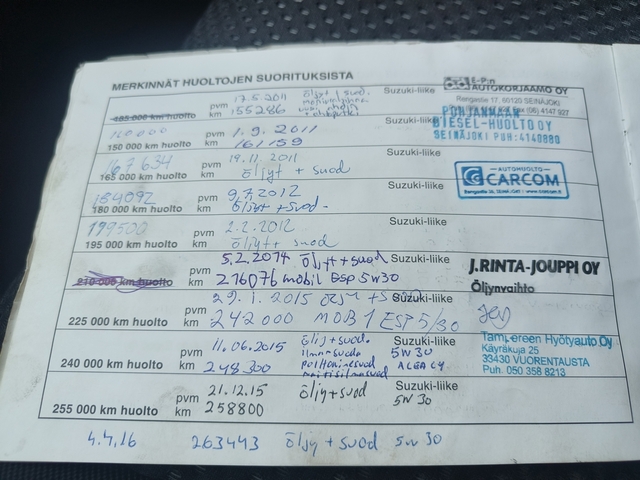 MERKINNÄT HUOLTOJEN SUORITUKSISTA
E-P:n
AUTOKORJAAMO OY
Rengastie 17, 60120 SEINÄJOKI
(06) 4147 927
135 000 km huolto pvm 17.5.2011 öljyt / suod. Suzuki-liike
km 155286
POHJANMAAN
DIESEL-HUOLTO OY
SEINÄJOKI PUH:4140880
150 000 km huolto pvm 1.9.2011 Suzuki-liike
km 161159
167 634
165 000 km huolto pvm 19.11.2011 Suzuki-liike
km öljyt + suod
AUTOHUOLTO
CARCOM
184092
180 000 km huolto pvm 9.7.2012 Suzuki-liike
km öljyt + suod.
199500
195 000 km huolto pvm 2.2.2012 Suzuki-liike
km öljyt + suod
210 000 km huolto pvm 5.2.2014 öljyt + suod Suzuki-liike
km 216076 mobil Esp 5w30
J.RINTA-JOUPPI OY
Öljynvaihto
225 000 km huolto pvm 29.1.2015 öljyt + suod Suzuki-liike
km 242000 MOB 1 ESP 5/30
Tampereen Hyötyauto Oy
Käyräkuja 25
33430 VUORENTAUSTA
Puh. 050 358 8213
240 000 km huolto pvm 11.06.2015 öljy+suod. Suzuki-liike
km 248300 ilmansuod 5W30
255 000 km huolto pvm 21.12.15 öljy+suod Suzuki-liike
km 258800 5W 30
4.4.16 263443 öljy + suod 5w 30